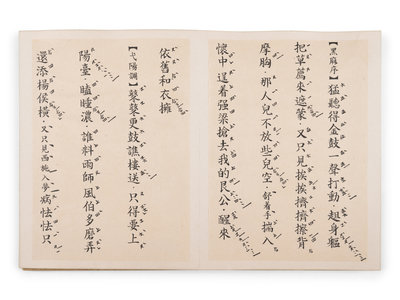 【黑麻序】猛聽得金鼓一聲打動·趄身軀
把草蓆來遮蒙·又只見挨挨擠擠擦背
摩胸·那人兒不放些兒空·舒着手揣入
懷中·逞着强梁搶去我的艮公·醒來
依舊和衣擁
【弋陽調】鼕鼕更鼓譙樓送·只得要上
陽臺·瞌睡濃·誰料雨師風伯多磨弄
還添楊侯橫·又只見西施入夢病怯怯只